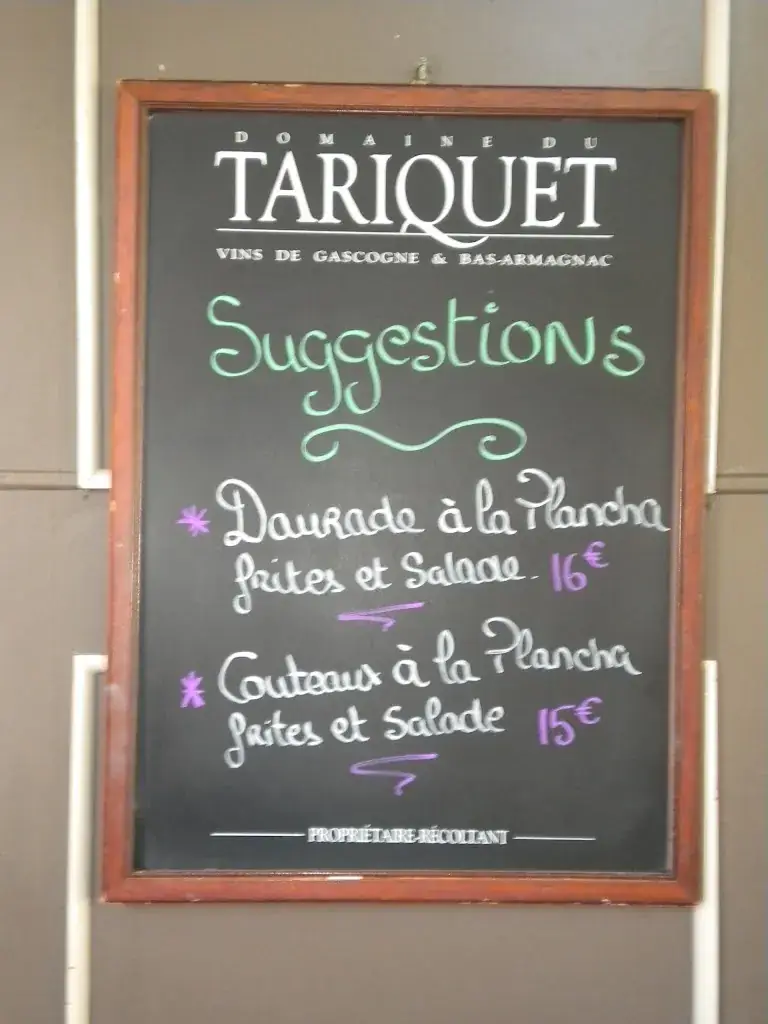 DOMAINE DU
TARIQUET
VINS DE GASCOGNE & BAS-ARMAGNAC
Suggestions
* Daurade à la Plancha
frites et Salade. 16€
* Couteaux à la Plancha
frites et Salade 15€
PROPRIÉTAIRE-RÉCOLTANT